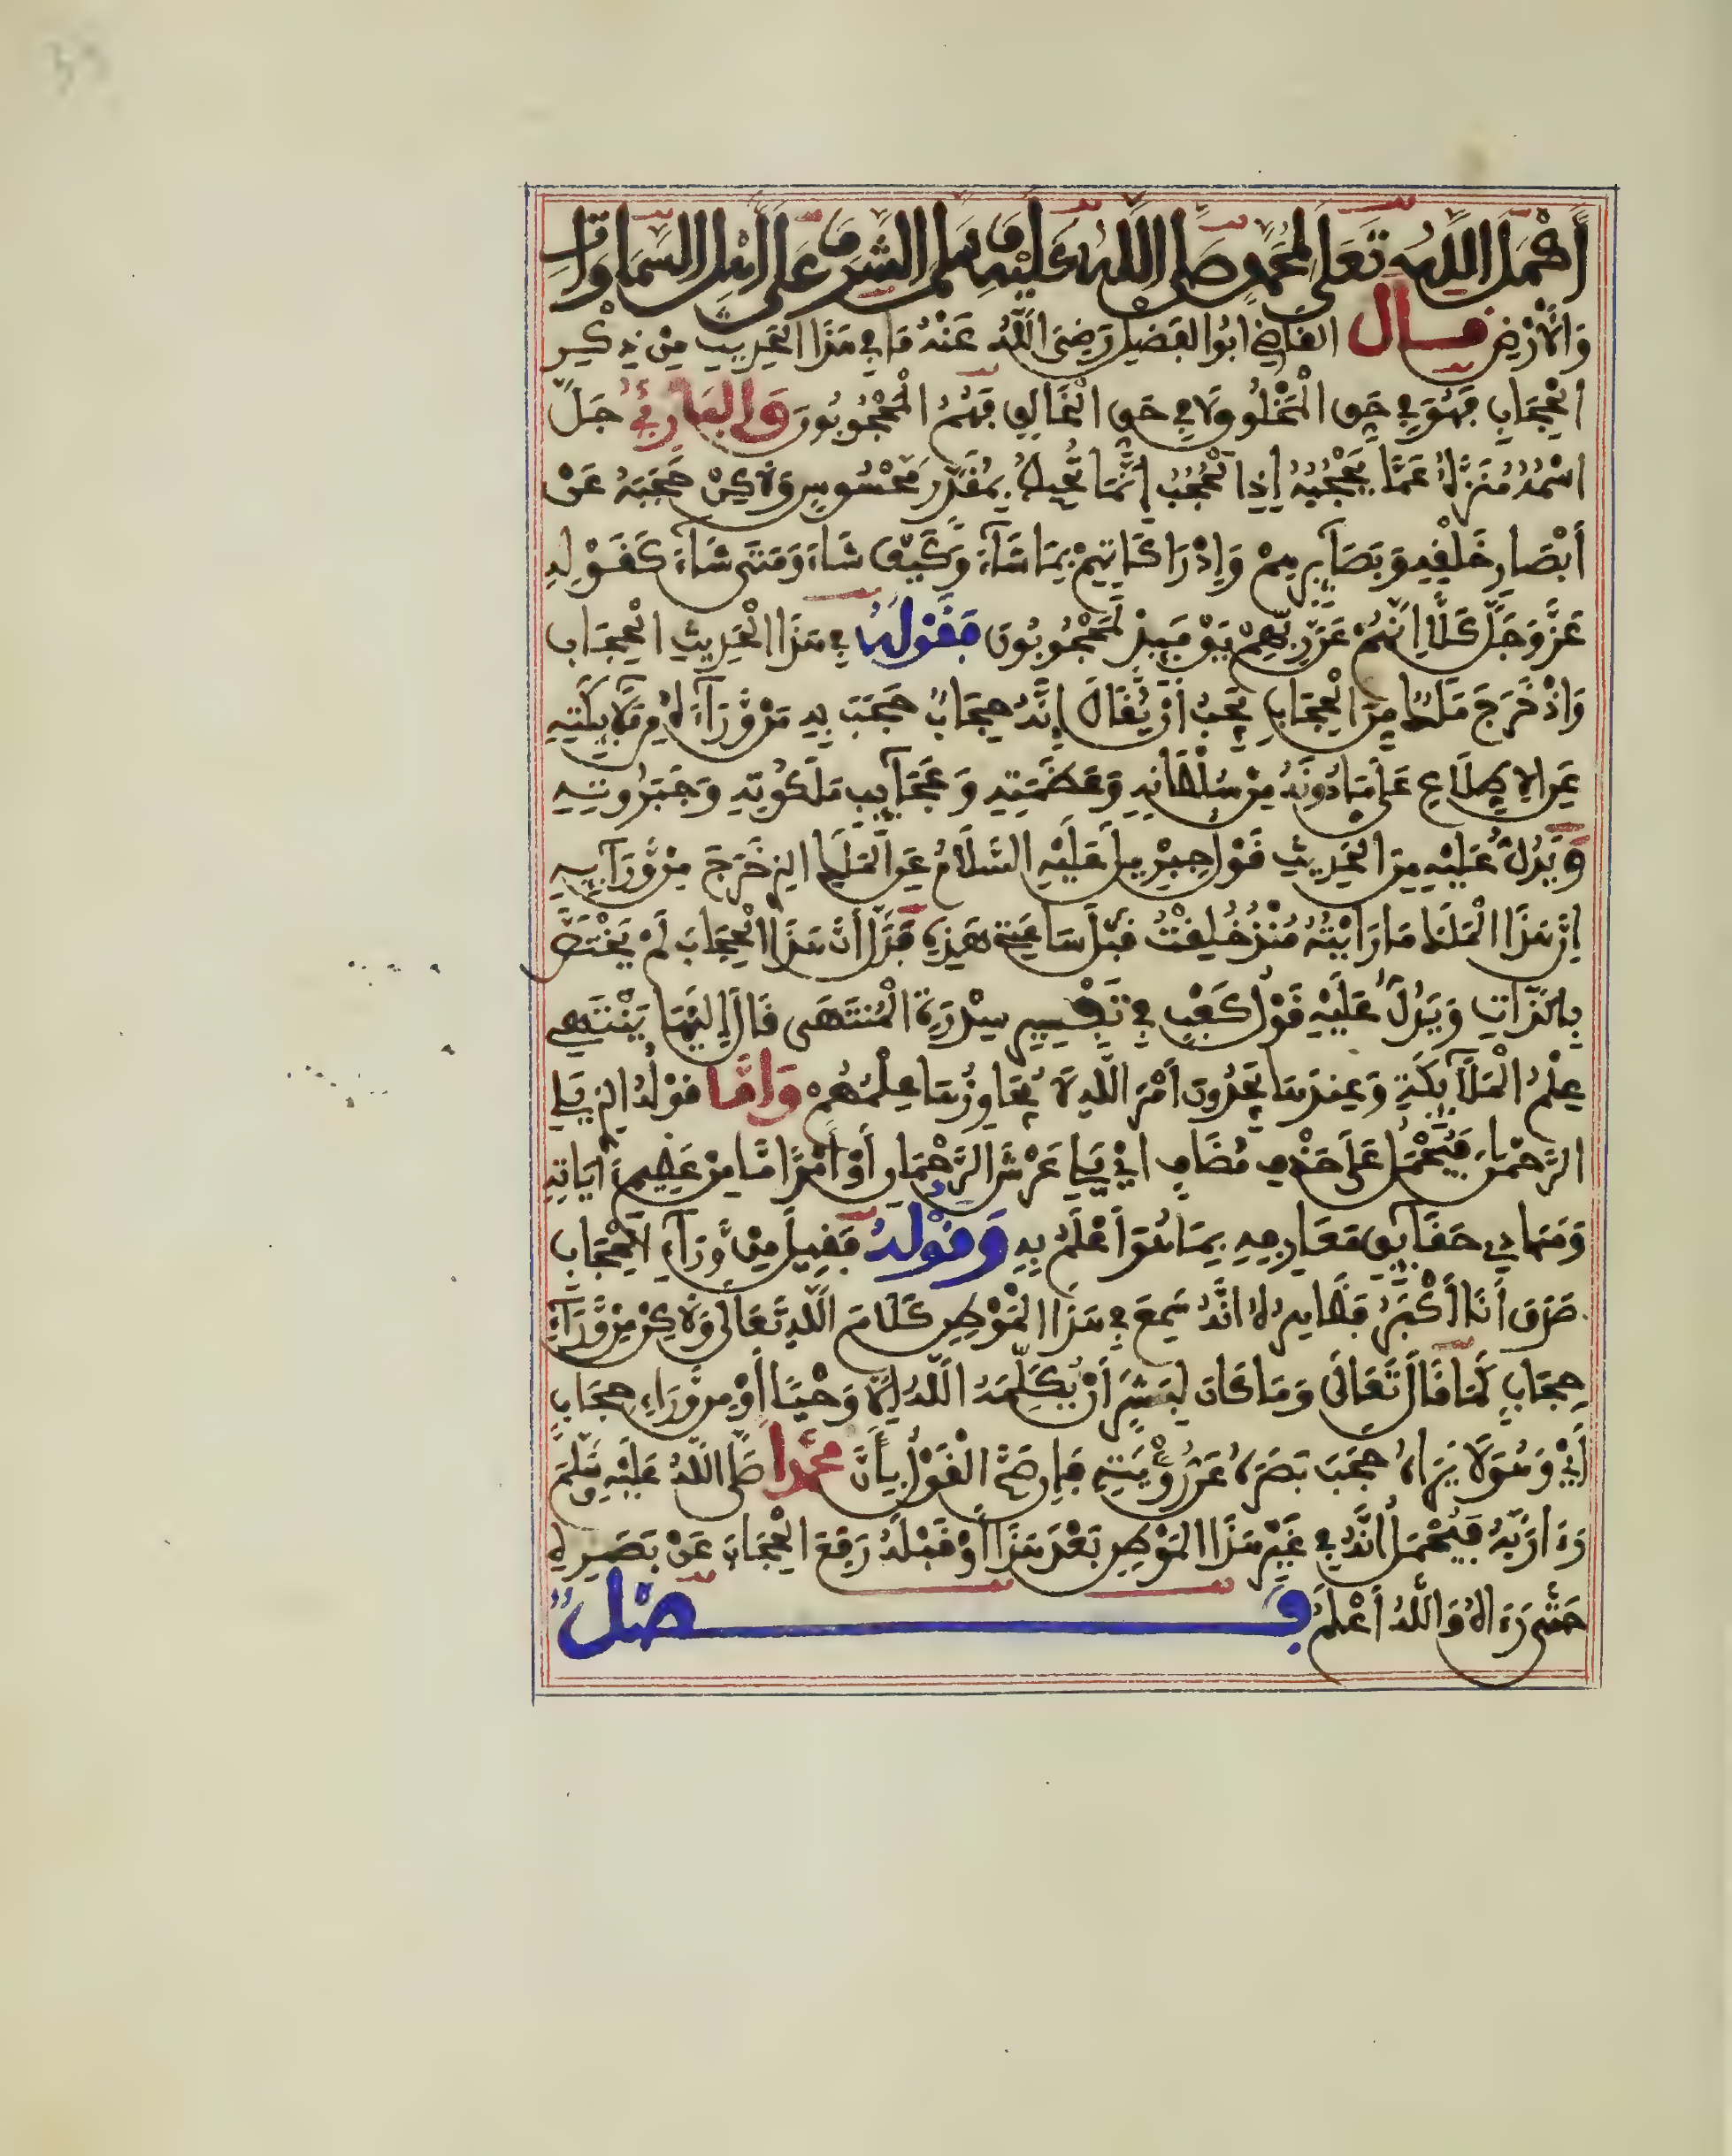 أَكْمَلَ اللَّهُ تَعَالَى لِمُحَمَّدٍ صَلَّى اللَّهُ عَلَيْهِ وَسَلَّمَ الشَّرَفَ عَلَى أَهْلِ السَّمَاوَاتِ
وَالْأَرْضِ قَالَ الْقَاضِي أَبُو الْفَضْلِ رَضِيَ اللَّهُ عَنْهُ مَا فِي هَذَا الْحَدِيثِ مِنْ ذِكْرِ
الْحِجَابِ فَهُوَ فِي حَقِّ الْمَخْلُوقِ لَا فِي حَقِّ الْخَالِقِ فَهُمُ الْمَحْجُوبُونَ وَالْبَارِئُ جَلَّ
اسْمُهُ مُنَزَّهٌ عَمَّا يَحْجُبُهُ إِذِ الْحُجُبُ إِنَّمَا تُحِيطُ بِمُقَدَّرٍ مَحْسُوسٍ وَلَاكِنْ حُجُبُهُ عَنْ
أَبْصَارِ خَلْقِهِ وَبَصَائِرِهِمْ وَإِدْرَاكَاتِهِمْ بِمَا شَاءَ وَكَيْفَ شَاءَ وَمَتَى شَاءَ كَقَوْلِهِ
عَزَّ وَجَلَّ كَلَّا إِنَّهُمْ عَن رَّبِّهِمْ يَوْمَئِذٍ لَمَحْجُوبُونَ فَقَوْلُهُ فِي هَذَا الْحَدِيثِ الْحِجَابُ
وَإِذْ خَرَجَ مَلَكٌ مِنَ الْحِجَابِ يَجِبُ أَنْ يُقَالَ إِنَّهُ حِجَابٌ حَجَبَ بِهِ مَنْ وَرَاءَهُ مِنْ مَلَائِكَتِهِ
عَنِ الِاطِّلَاعِ عَلَى مَا دُونَهُ مِنْ سُلْطَانِهِ وَعَظَمَتِهِ وَعَجَائِبِ مَلَكُوتِهِ وَجَبَرُوتِهِ
وَيَدُلُّ عَلَيْهِ مِنَ الْحَدِيثِ قَوْلُ جِبْرِيلَ عَلَيْهِ السَّلَامُ عَنِ الْمَلَكِ الَّذِي خَرَجَ مِنْ وَرَائِهِ
إِنَّ هَذَا الْمَلَكَ مَا رَأَيْتُهُ مُنْذُ خُلِقْتُ قَبْلَ سَاعَتِي هَذِهِ فَدَلَّ أَنَّ هَذَا الْحِجَابَ لَمْ يَخْتَصَّ
بِالذَّاتِ وَيَدُلُّ عَلَيْهِ قَوْلُ كَعْبٍ فِي تَفْسِيرِ سِدْرَةِ الْمُنْتَهَى قَالَ إِلَيْهَا يَنْتَهِي
عِلْمُ الْمَلَائِكَةِ وَعِنْدَهَا يَجِدُونَ أَمْرَ اللَّهِ لَا يُجَاوِزُهَا عِلْمُهُمْ وَأَمَّا قَوْلُهُ الَّذِي يَلِي
الرَّحْمَانَ فَيُحْمَلُ عَلَى حَذْفِ مُضَافٍ أَيْ يَلِي عَرْشَ الرَّحْمَانِ أَوْ أَمْرًا مَّا مِنْ عَظِيمِ آيَاتِهِ
وَمَبَادِي حَقَائِقِ مَعَارِفِهِ بِمَا هُوَ أَعْلَمُ بِهِ وَقَوْلُهُ فَقِيلَ مِنْ وَرَاءِ الْحِجَابِ
صَدَقَ أَنَا أَكْبَرُ فَظَاهِرُهُ أَنَّهُ سَمِعَ فِي هَذَا الْمَوْطِنِ كَلَامَ اللَّهِ تَعَالَى وَلَاكِنْ مِنْ وَرَاءِ
حِجَابٍ كَمَا قَالَ تَعَالَى وَمَا كَانَ لِبَشَرٍ أَنْ يُكَلِّمَهُ اللَّهُ إِلَّا وَحْيًا أَوْ مِنْ وَرَاءِ حِجَابٍ
أَيْ وَهُوَ لَا يَرَاهُ حَجَبَ بَصَرَهُ عَنْ رُؤْيَتِهِ فَإِنْ صَحَّ الْقَوْلُ بِأَنَّ مُحَمَّدًا صَلَّى اللَّهُ عَلَيْهِ وَسَلَّمَ
رَءَا رَبَّهُ فَيُحْمَلُ أَنَّهُ فِي غَيْرِ هَذَا الْمَوْطِنِ بَعْدَ هَذَا أَوْ قَبْلَهُ رَفَعَ الْحِجَابَ عَنْ بَصَرِهِ
حَتَّى رَءَاهُ وَاللَّهُ أَعْلَمُ فَصْلٌ